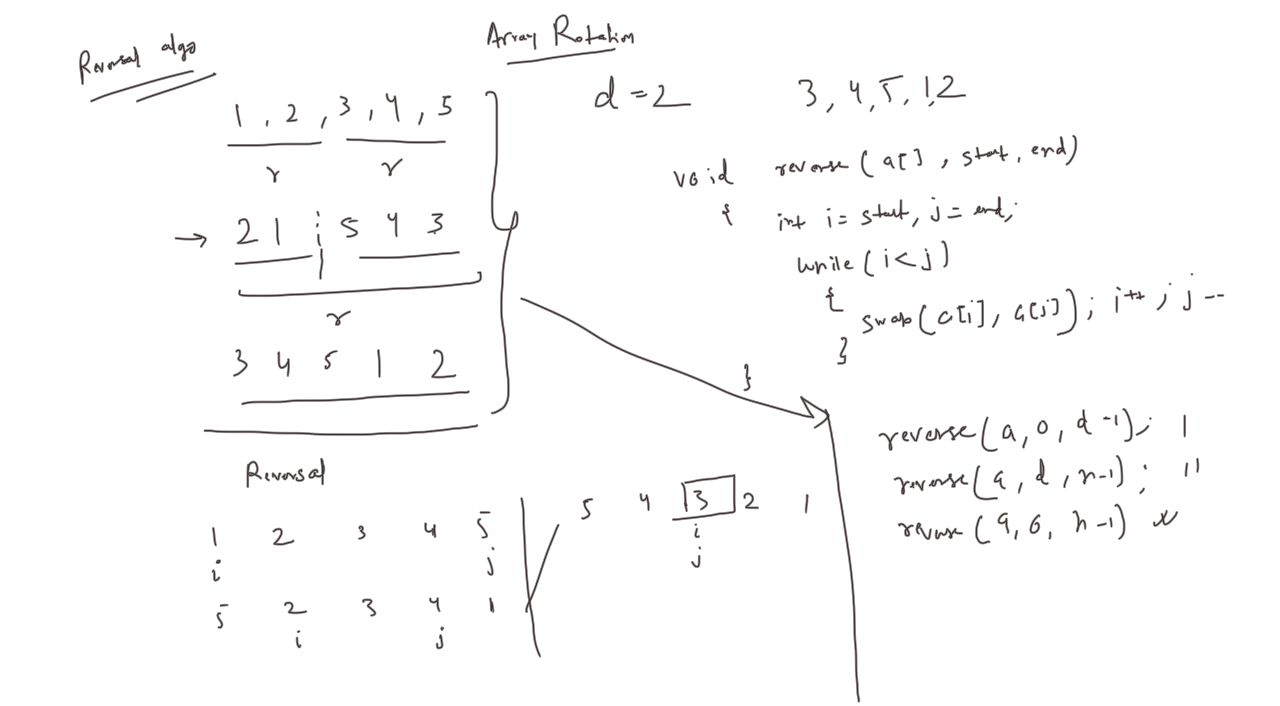 Reversal algo
Array Rotation
1 , 2 , 3 , 4 , 5
r r
2 1 5 4 3
r
3 4 5 1 2
d = 2
3, 4, 5, 1, 2
void reverse ( a[] , start, end)
{ int i = start, j = end;
while ( i < j )
{
swap (a[i], a[j]); i++ ; j--
}
}
reverse(a, 0, d-1);
reverse(a, d, n-1);
reverse(a, 0, n-1)
Reversal
1 2 3 4 5
i j
5 2 3 4 1
i j
5 4 3 2 1
i
j